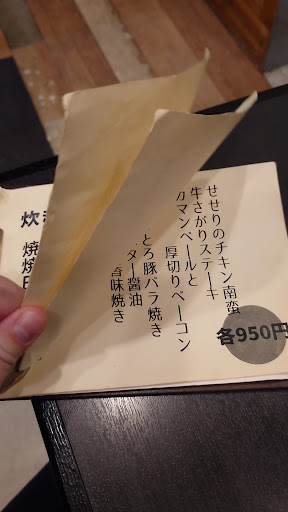 せせりのチキン南蛮
牛さがりステーキ
カマンベールと
厚切りベーコン
とろ豚バラ焼き
ター醤油
香味焼き
各950円
炊き
焼
焼